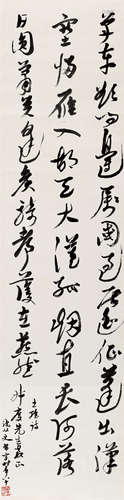 單車欲問邊屬國過居延征蓬出漢
塞歸雁入胡天大漠孤烟直長河落
日圓蕭關逢候騎都護在燕然
王維詩
先生